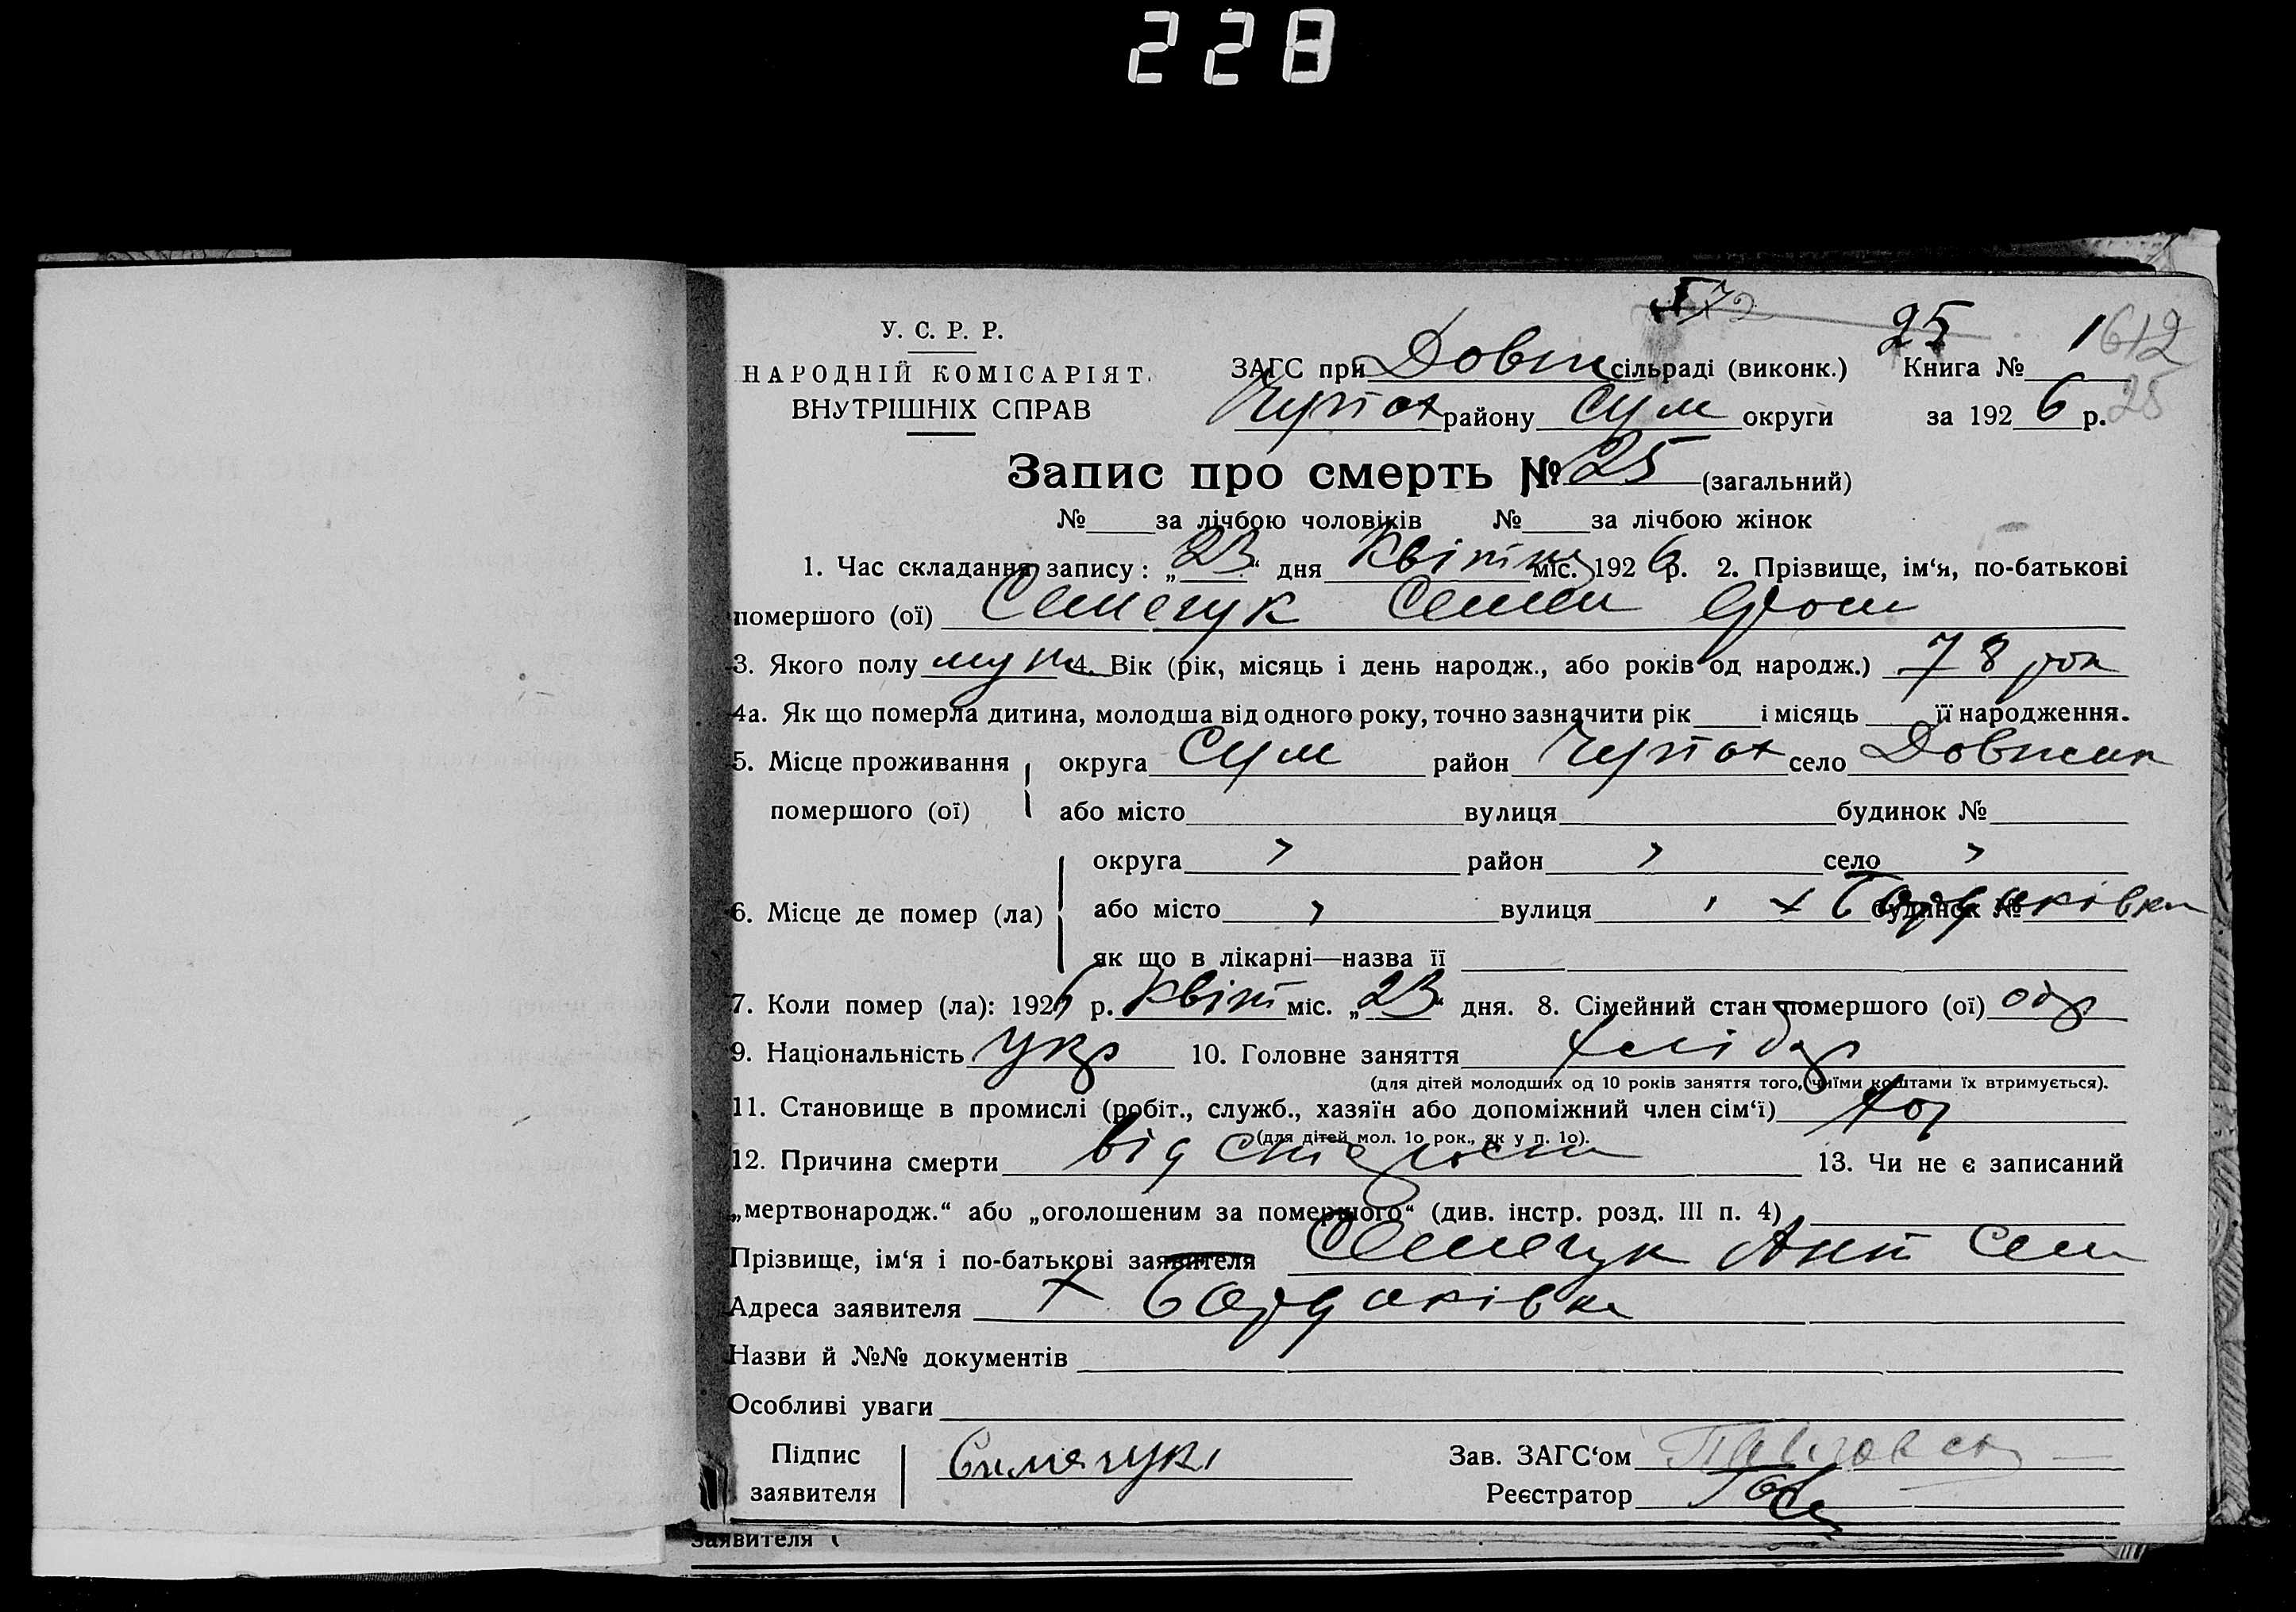 228
25 1 612
У. С. Р. Р.
НАРОДНІЙ КОМІСАРІЯТ
ВНУТРІШНІХ СПРАВ
ЗАГС при Довж сільраді (виконк.) Книга №
району Сум округи за 1926 р. 25
Запис про смерть № 25 (загальний)
№ за лічбою чоловіків № за лічбою жінок
1. Час складання запису: „23“ дня Квітня міс. 1926 р. 2. Прізвище, ім‘я, по-батькові
помершого (ої) Семечук Семен
3. Якого полу муж 4. Вік (рік, місяць і день народж., або років од народж.) 78 рок
4а. Як що померла дитина, молодша від одного року, точно зазначити рік і місяць її народження.
5. Місце проживання округа Сум район село Довжик
помершого (ої) або місто вулиця будинок №
округа район село
6. Місце де помер (ла) або місто вулиця х Бардаківка будинок №
як що в лікарні—назва її
7. Коли помер (ла): 1926 р. Квіт міс. „23“ дня. 8. Сімейний стан помершого (ої)
9. Національність укр 10. Головне заняття хлібор
(для дітей молодших од 10 років заняття того, чиїми коштами їх втримується).
11. Становище в промислі (робіт., служб., хазяїн або допоміжний член сім‘ї)
(для дітей мол. 10 рок., як у п. 10).
12. Причина смерти від 13. Чи не є записаний
„мертвонародж.“ або „оголошеним за помершого“ (див. інстр. розд. III п. 4)
Прізвище, ім‘я і по-батькові заявителя Семечук Ант Сем
Адреса заявителя х Бардаківка
Назви й №№ документів
Особливі уваги
Підпис Зав. ЗАГС‘ом
заявителя Реєстратор
заявителя